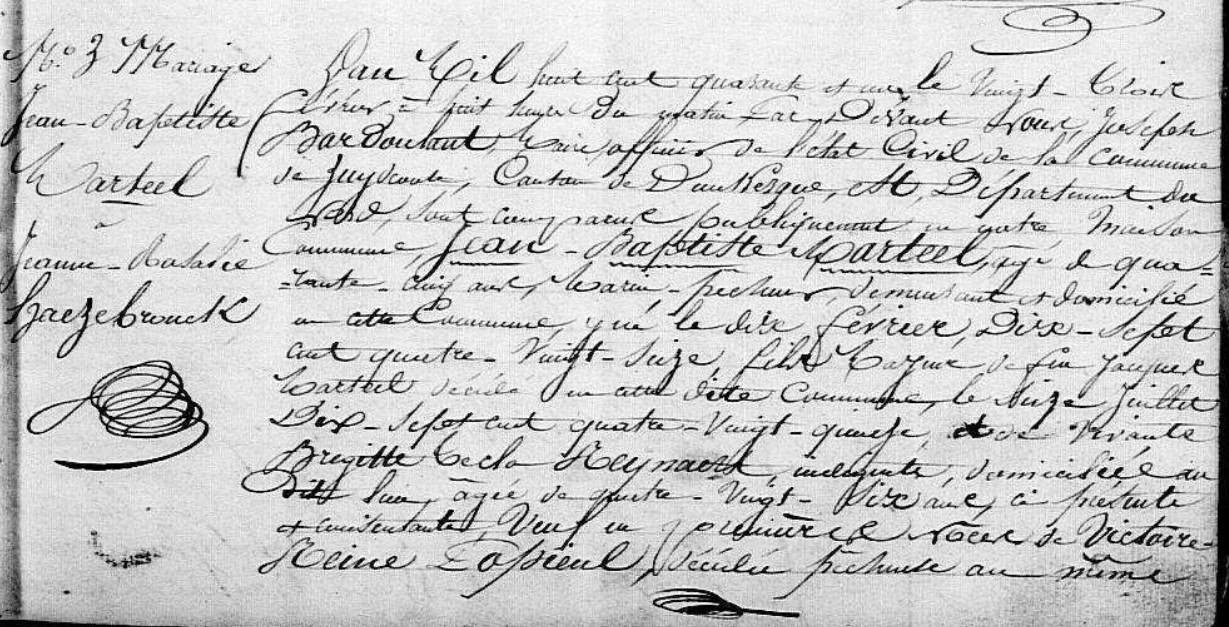 N.o 3 Mariage
Jean-Baptiste
Marteel
à
Jeanne-Rosalie
Haezebrouck
L'an Mil huit cent quarante et un, le Vingt-Trois
février à huit heures du matin Par Devant Nous, Joseph
Bardoulant, Maire, officier de l'état Civil de la Commune
de Zuydcoote, Canton de Dunkerque, Département du
Nord, sont comparus publiquement en notre Maison
Commune, Jean-Baptiste Marteel, âgé de qua=
=rante-cinq ans, Marin-pêcheur, demeurant et domicilié
en cette Commune, né le dix février, Dix-Sept
cent quatre-Vingt-Seize, fils Majeur de feu Jacques
Marteel décédé en cette dite Commune, le Seize Juillet
Dix-Sept cent quatre-Vingt-quinze, et de Vivante
Brigitte Tecla Reynaert, indigente, domiciliée au
dit lieu, âgée de quatre-Vingt-Dix ans, ci présente
et consentante, Veuf en premières Noces de Victoire-
Reine Lapieul, décédée pêcheuse au même